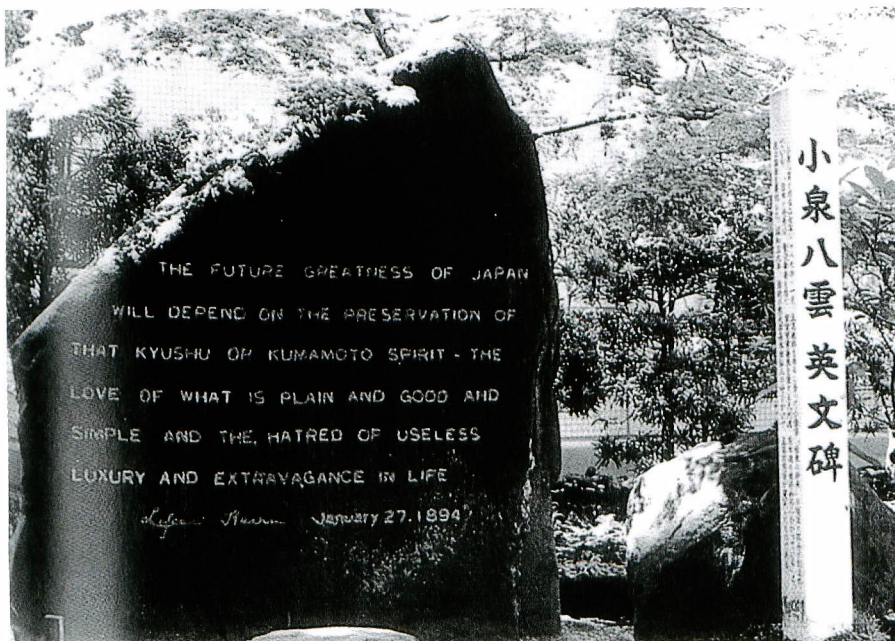 THE FUTURE GREATNESS OF JAPAN
WILL DEPEND ON THE PRESERVATION OF
THAT KYUSHU OR KUMAMOTO SPIRIT - THE
LOVE OF WHAT IS PLAIN AND GOOD AND
SIMPLE AND THE HATRED OF USELESS
LUXURY AND EXTRAVAGANCE IN LIFE
Lafcadio Hearn January 27. 1894
小泉八雲 英文碑